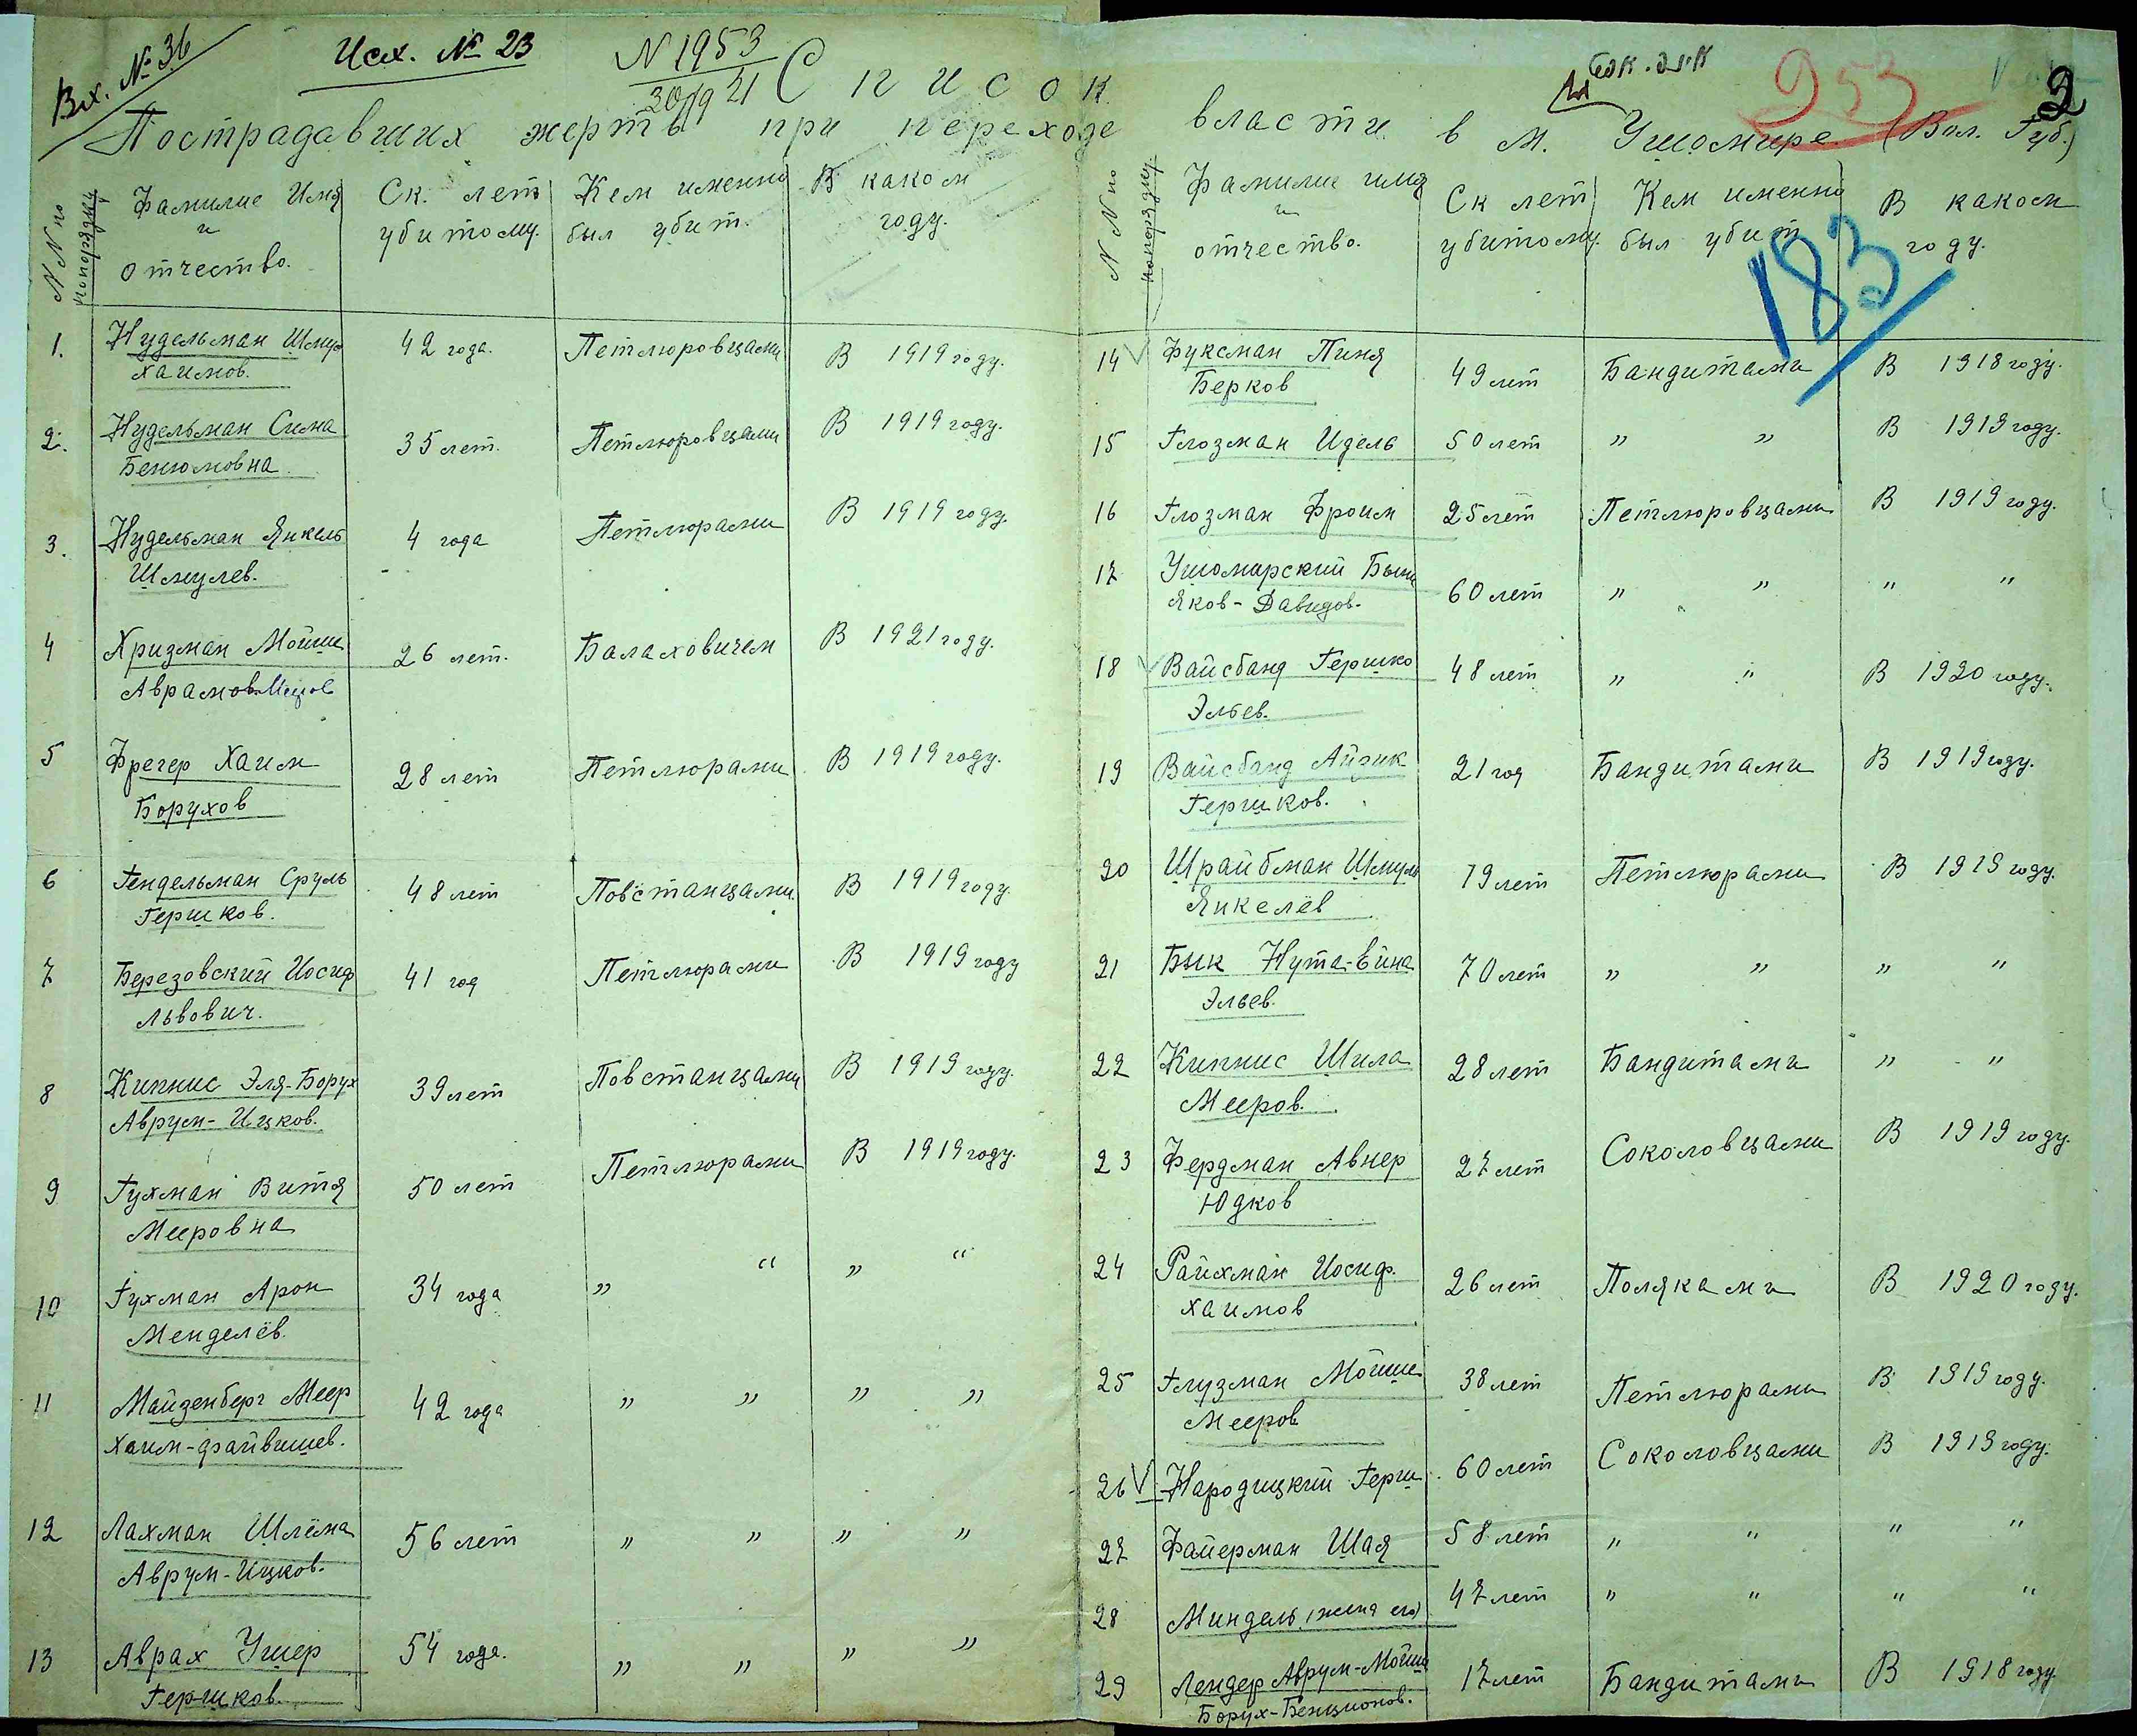 Вх. № 36
Исх. № 23
N 1953
30/IX 21
Список
Пострадавших жертв при переходе власти в м. Ушомире (Вол. Губ.)
253
2
183
N N по порядку
Фамилие Имя
и
отчество.
Ск. лет
убитому.
Кем именно
был убит.
В каком
году.
1. Нудельман Шмул 42 года. Петлюровцами В 1919 году.
Хаимов.
2. Нудельман Сима 35 лет. Петлюровцами В 1919 году.
Бенюмовна
3. Нудельман Янкель 4 года Петлюрами В 1919 году.
Шмулев.
4 Хризман Мойше 26 лет. Балаховичем В 1921 году.
Аврамов
5 Фрегер Хаим 28 лет Петлюрами В 1919 году.
Борухов
6 Гендельман Сруль 48 лет Повстанцами В 1919 году.
Гершков.
7 Березовский Иосиф 41 год Петлюрами В 1919 году
Львович.
8 Кипнис Эля-Борух 39 лет Повстанцами В 1919 году.
Аврум-Ицков.
9 Гухман Витя 50 лет Петлюрами В 1919 году.
Мееровна
10 Гухман Арон 34 года „ “ „ “
Менделёв.
11 Майзенберг Меер 42 года „ „ „ „
Хаим-файвишев.
12 Лахман Шлёма 56 лет „ „ „ „
Аврум-Ицков.
13 Аврах Ушер 54 года. „ „ „ „
Гершков.
N N по порядку
Фамилие имя
и
отчество.
Ск лет
убитому.
Кем именно
был убит
В каком
году.
14 Фуксман Пиня 49 лет Бандитами В 1918 году.
Берков
15 Глозман Идель 50 лет „ „ В 1919 году.
16 Глозман Фроим 25 лет Петлюровцами В 1919 году.
17 Ушомирский 60 лет „ „ „ „
Яков-Давидов.
18 Вайсбанд Гершко 48 лет „ „ В 1920 году.
Эльев.
19 Вайсбанд Айзик 21 год Бандитами В 1919 году.
Гершков.
20 Шрайбман Шмуль 19 лет Петлюрами В 1919 году.
Янкелёв
21 Бык Нута-Ейна 70 лет „ „ „ „
Эльев.
22 Кипнис Шила 28 лет Бандитами „ „
Мееров.
23 Фердман Авнер 27 лет Соколовцами В 1919 году.
Юдков
24 Райхман Иосиф. 26 лет Поляками В 1920 году.
Хаимов
25 Глузман Мойше 38 лет Петлюрами В 1919 году.
Мееров
26 Народицкий Герш 60 лет Соколовцами В 1919 году.
27 Файерман Шая 58 лет „ „ „ „
28 Миндель (жена его) 47 лет „ „ „ „
29 Лендер Аврум-Мойше 17 лет Бандитами В 1918 году.
Борух-Бенционов.